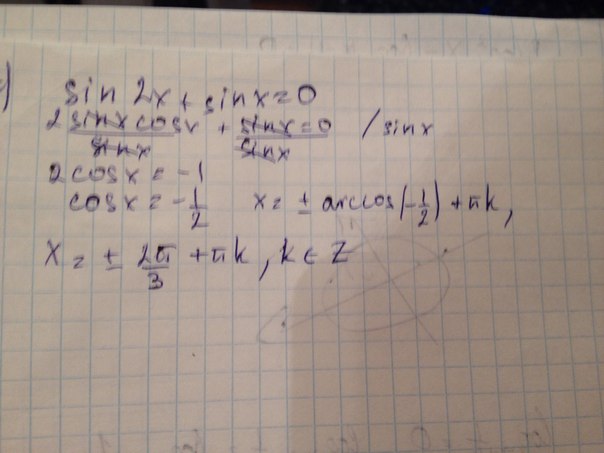 )
sin 2x + sinx = 0
2 sinx cosx / sinx + sinx = 0 / sinx /sinx
2cosx = -1
cosx = -1/2 x = ± arccos(-1/2) + πk,
x = ± 2π/3 + πk, k ∈ Z